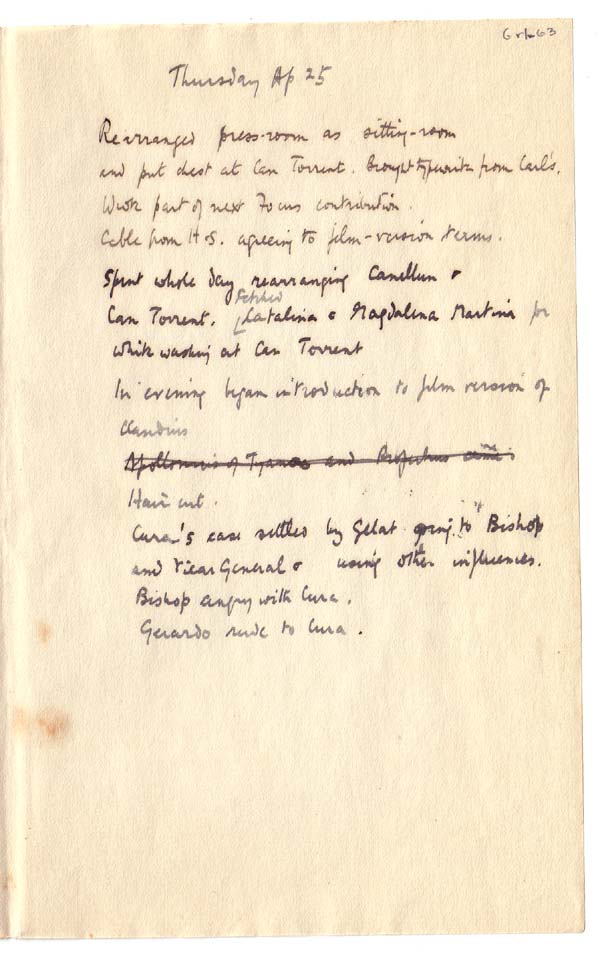 Thursday Ap 25
Rearranged press-room as sitting-room
and put chest at Can Torrent. Brought typewriter from Carl's.
Wrote part of next Focus contribution.
Cable from H+S. agreeing to film-version terms.
Spent whole day rearranging Canellun &
Can Torrent. Fetched Catalina & Magdalena Martina for
white washing at Can Torrent
In evening began introduction to film version of
Claudius
Apollonius of Tyana and Propertius
Hair cut.
Cura's case settled by Gelat going to Bishop
and Vicar General & using other influences.
Bishop angry with Cura.
Gerardo rude to Cura.